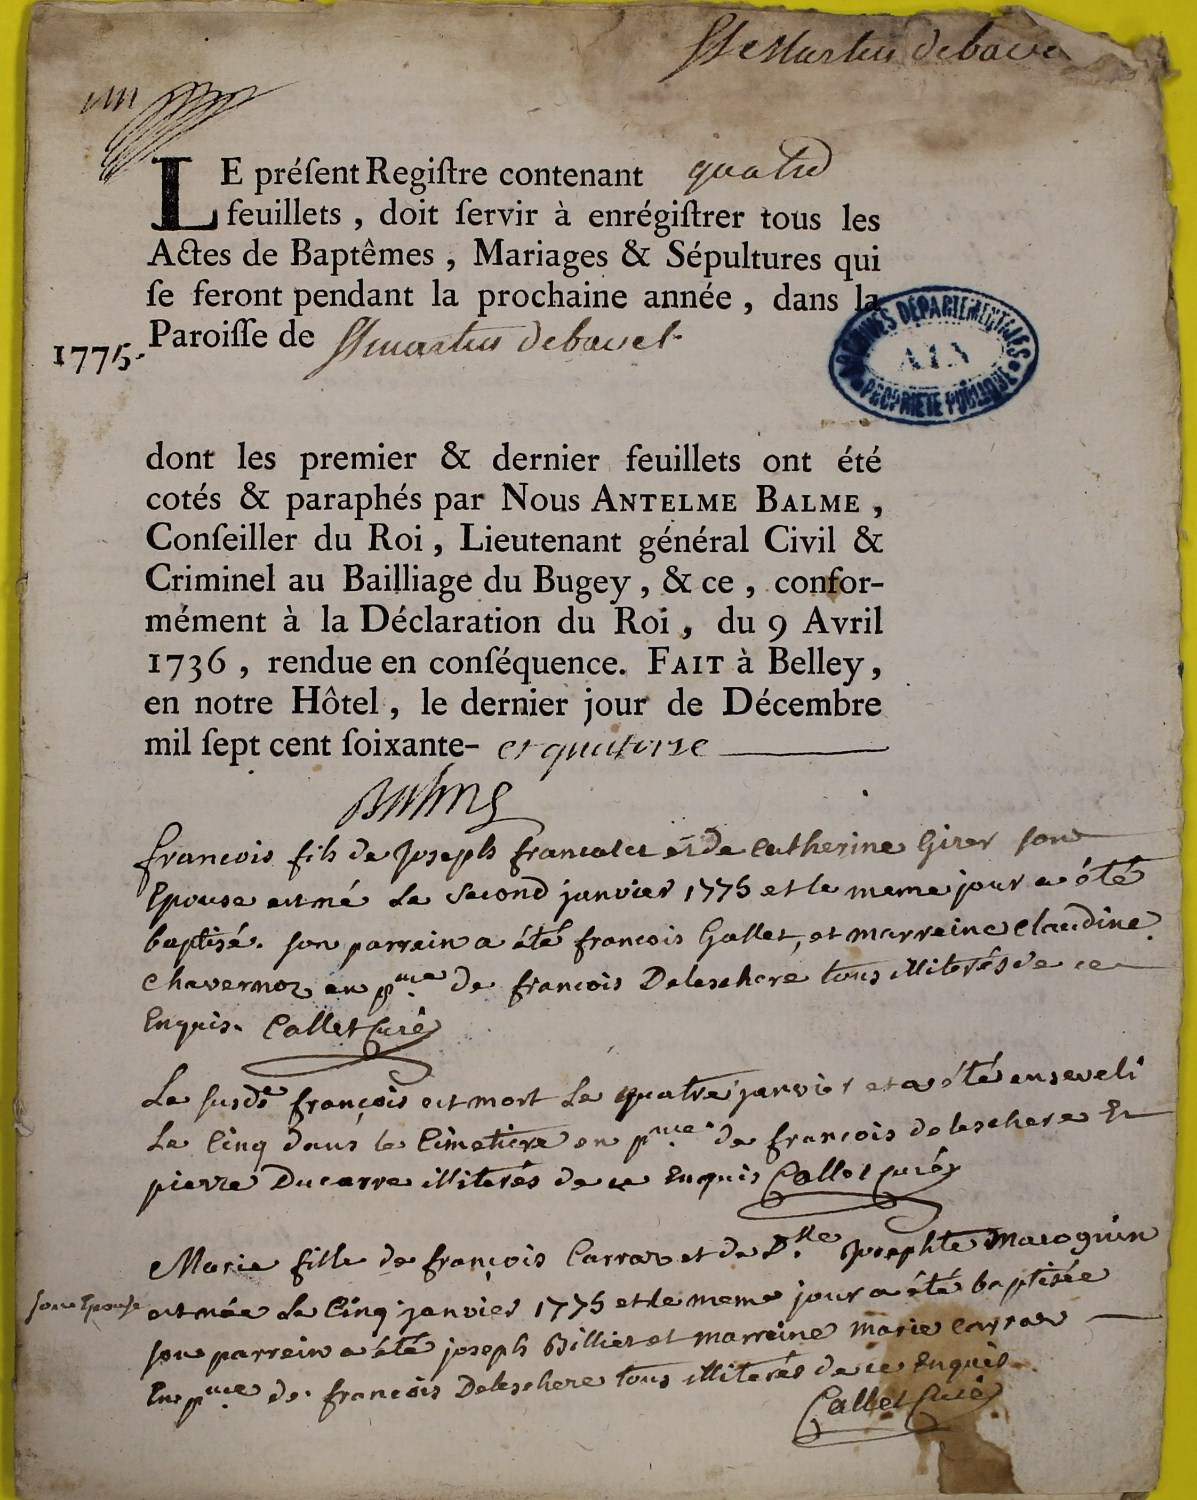 St Martin de bavel
un
LE préſent Regiſtre contenant quatre
feuillets, doit ſervir à enrégiſtrer tous les
Actes de Baptêmes, Mariages & Sépultures qui
ſe feront pendant la prochaine année, dans la
Paroiſſe de St martin de bavel
1775.
ARCHIVES DÉPARTEMENTALES
AIN
PROPRIÉTÉ PUBLIQUE
dont les premier & dernier feuillets ont été
cotés & paraphés par Nous ANTELME BALME,
Conſeiller du Roi, Lieutenant général Civil &
Criminel au Bailliage du Bugey, & ce, confor-
mément à la Déclaration du Roi, du 9 Avril
1736, rendue en conſéquence. FAIT à Belley,
en notre Hôtel, le dernier jour de Décembre
mil ſept cent ſoixante- et quatorse
Balme
françois fils de Joseph francalet et de catherine Girer son
Epouse est né le second janvier 1775 et le meme jour a été
baptisé. son parrein a été françois Gallet, et marreine claudine
chavernoz en pnce de françois Deleschere tous illiterés de ce
Enquis. Callet Curé
Le susdt françois est mort le quatre janvier et a été enseveli
le Cinq dans le Cimetiere en pnce de françois deleschere Et
pierre Ducarre illiterés de ce Enquis Callet curé
Marie fille de françois Carraz et de Dlle Josephte Macognin
son Epouse est née le Cinq janvier 1775 et le meme jour a été baptisée
son parrein a été joseph Billiet et marreine marie carraz
En pnce de françois Deleschere tous illiterés de ce Enquis.
Callet Curé